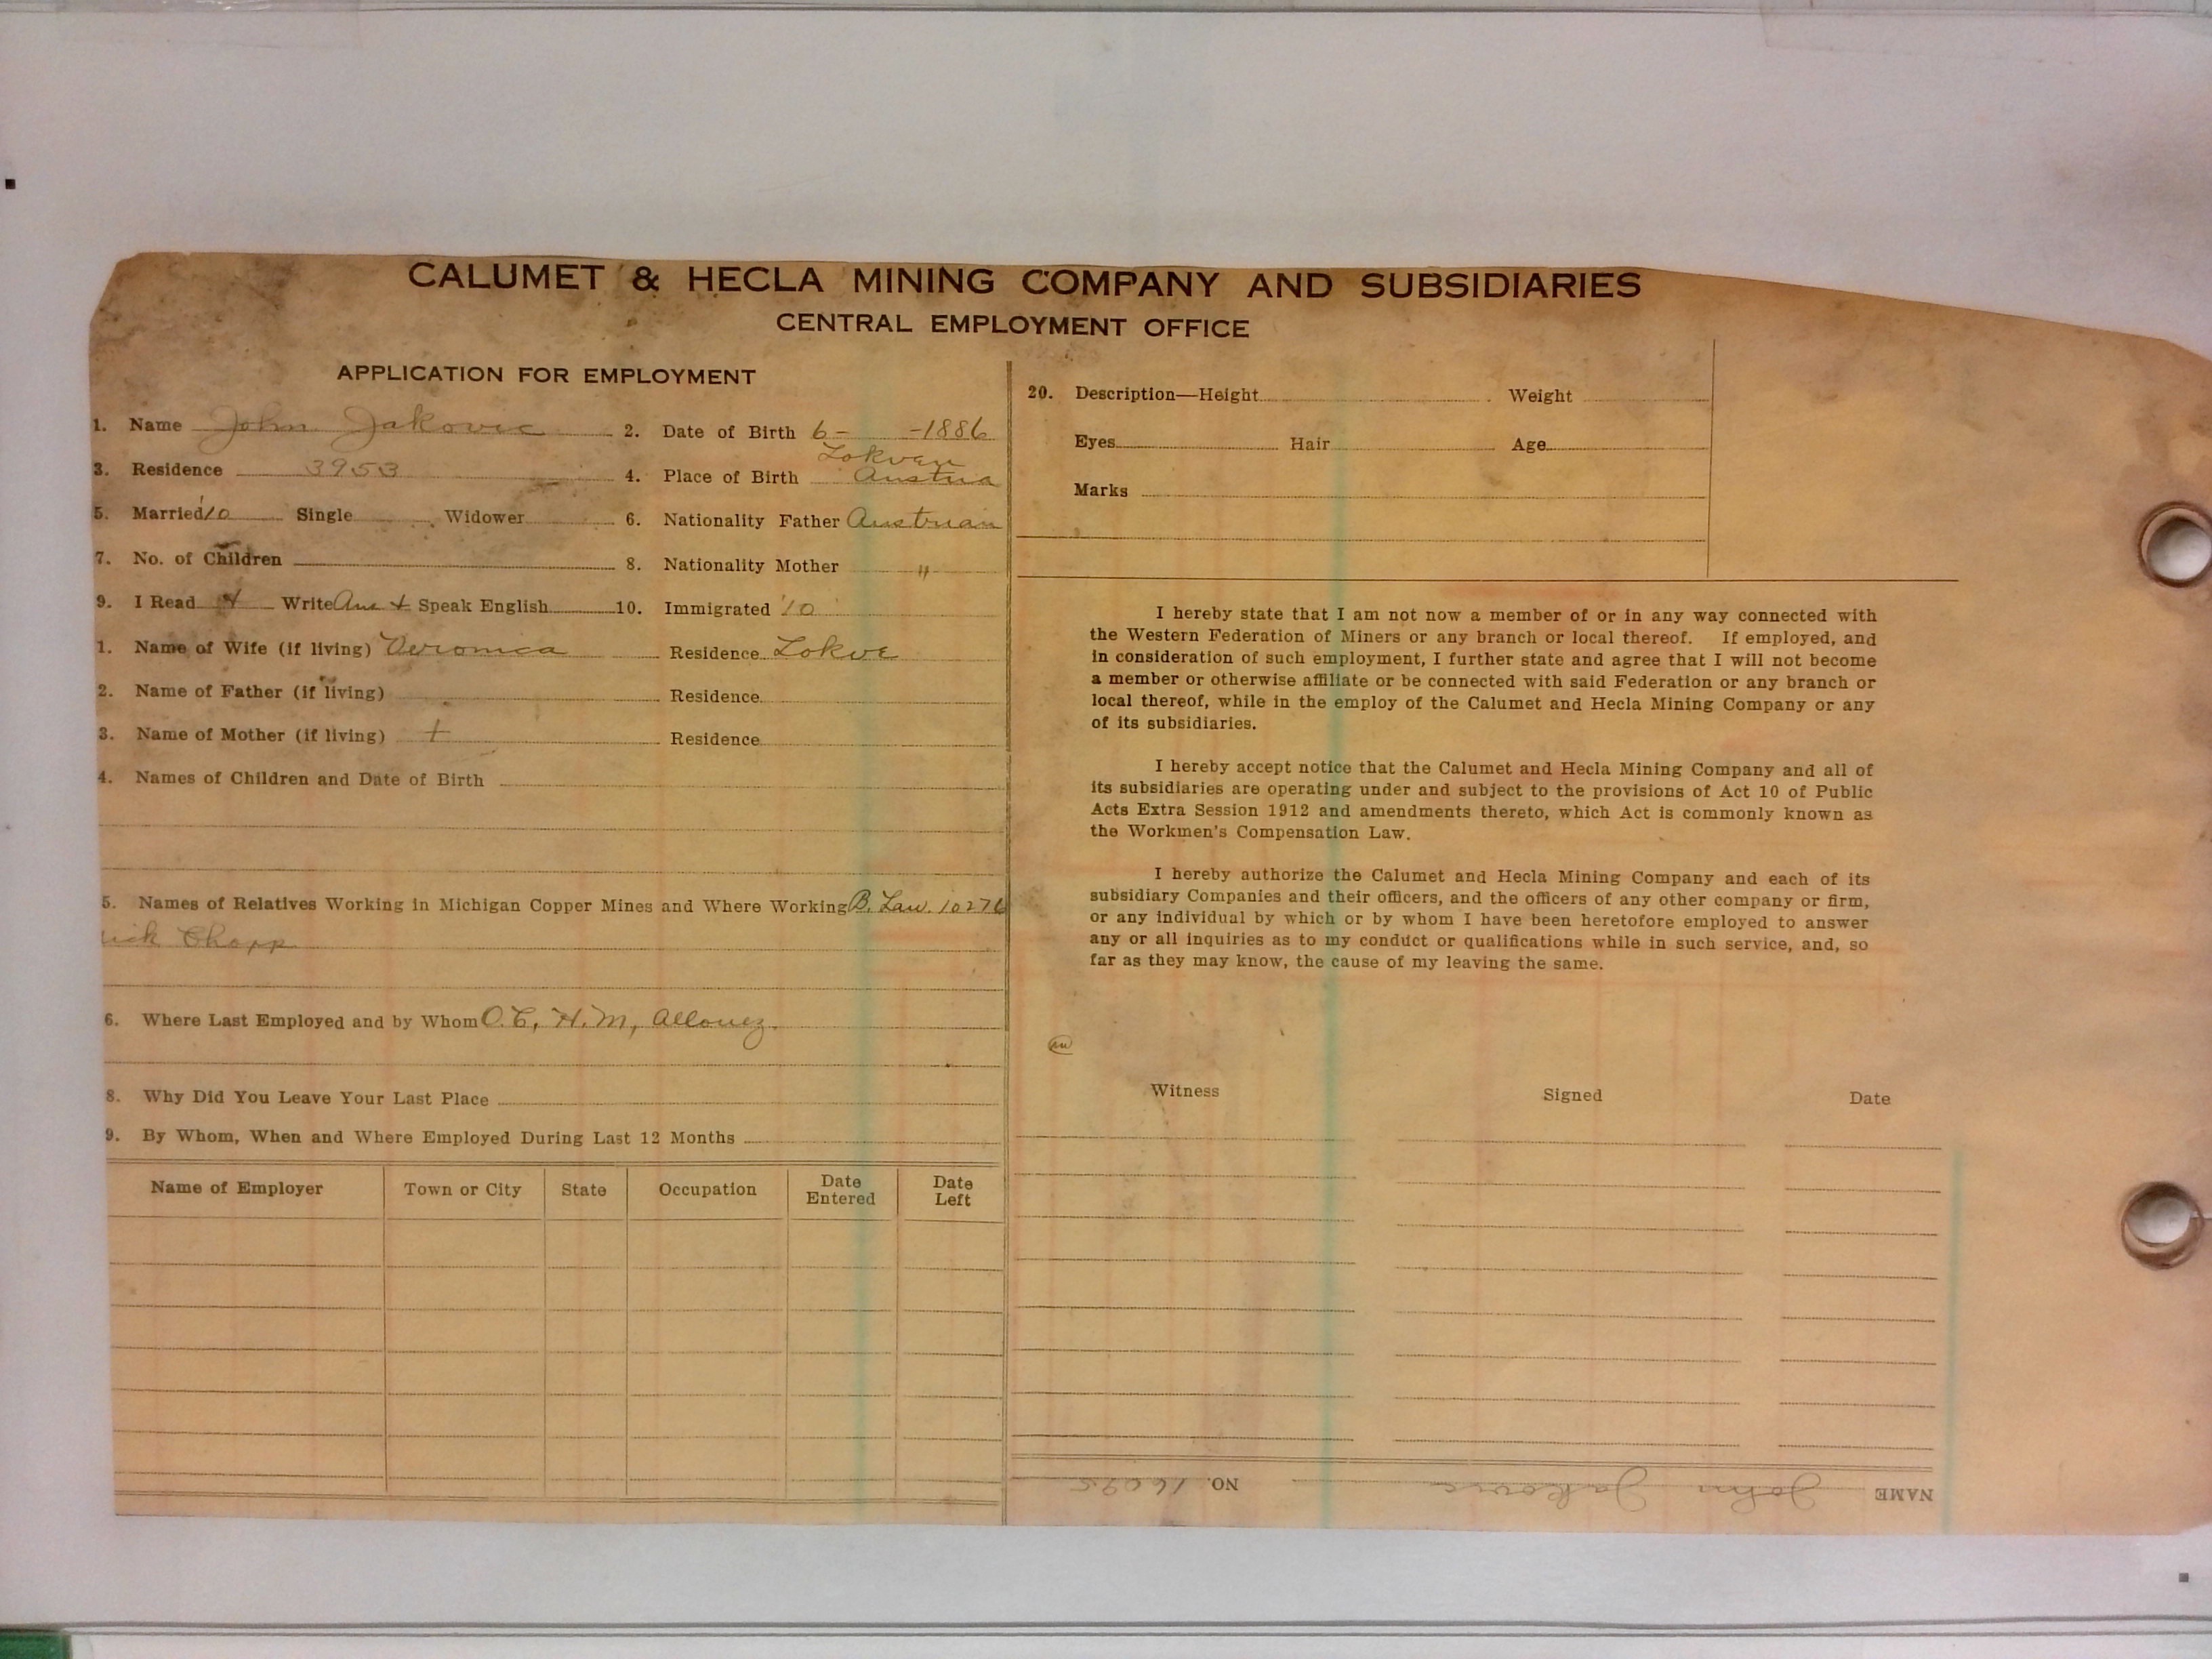 CALUMET & HECLA MINING COMPANY AND SUBSIDIARIES
CENTRAL EMPLOYMENT OFFICE
APPLICATION FOR EMPLOYMENT
1. Name John Jakovic 2. Date of Birth 6- -1886
3. Residence 3953 4. Place of Birth Lokvan Austria
5. Married '10 Single Widower 6. Nationality Father Austrian
7. No. of Children 8. Nationality Mother "
9. I Read + Write Aus + Speak English 10. Immigrated '10
1. Name of Wife (if living) Veronica Residence Lokve
2. Name of Father (if living) Residence
3. Name of Mother (if living) + Residence
4. Names of Children and Date of Birth
5. Names of Relatives Working in Michigan Copper Mines and Where Working B. Law. 10276
ick Chopp
6. Where Last Employed and by Whom O.C, H.M, Allouez.
8. Why Did You Leave Your Last Place
9. By Whom, When and Where Employed During Last 12 Months
Name of Employer Town or City State Occupation Date Entered Date Left
20. Description—Height Weight
Eyes Hair Age
Marks
I hereby state that I am not now a member of or in any way connected with
the Western Federation of Miners or any branch or local thereof. If employed, and
in consideration of such employment, I further state and agree that I will not become
a member or otherwise affiliate or be connected with said Federation or any branch or
local thereof, while in the employ of the Calumet and Hecla Mining Company or any
of its subsidiaries.
I hereby accept notice that the Calumet and Hecla Mining Company and all of
its subsidiaries are operating under and subject to the provisions of Act 10 of Public
Acts Extra Session 1912 and amendments thereto, which Act is commonly known as
the Workmen's Compensation Law.
I hereby authorize the Calumet and Hecla Mining Company and each of its
subsidiary Companies and their officers, and the officers of any other company or firm,
or any individual by which or by whom I have been heretofore employed to answer
any or all inquiries as to my conduct or qualifications while in such service, and, so
far as they may know, the cause of my leaving the same.
Witness Signed Date
NAME John Jakovic NO. 16095